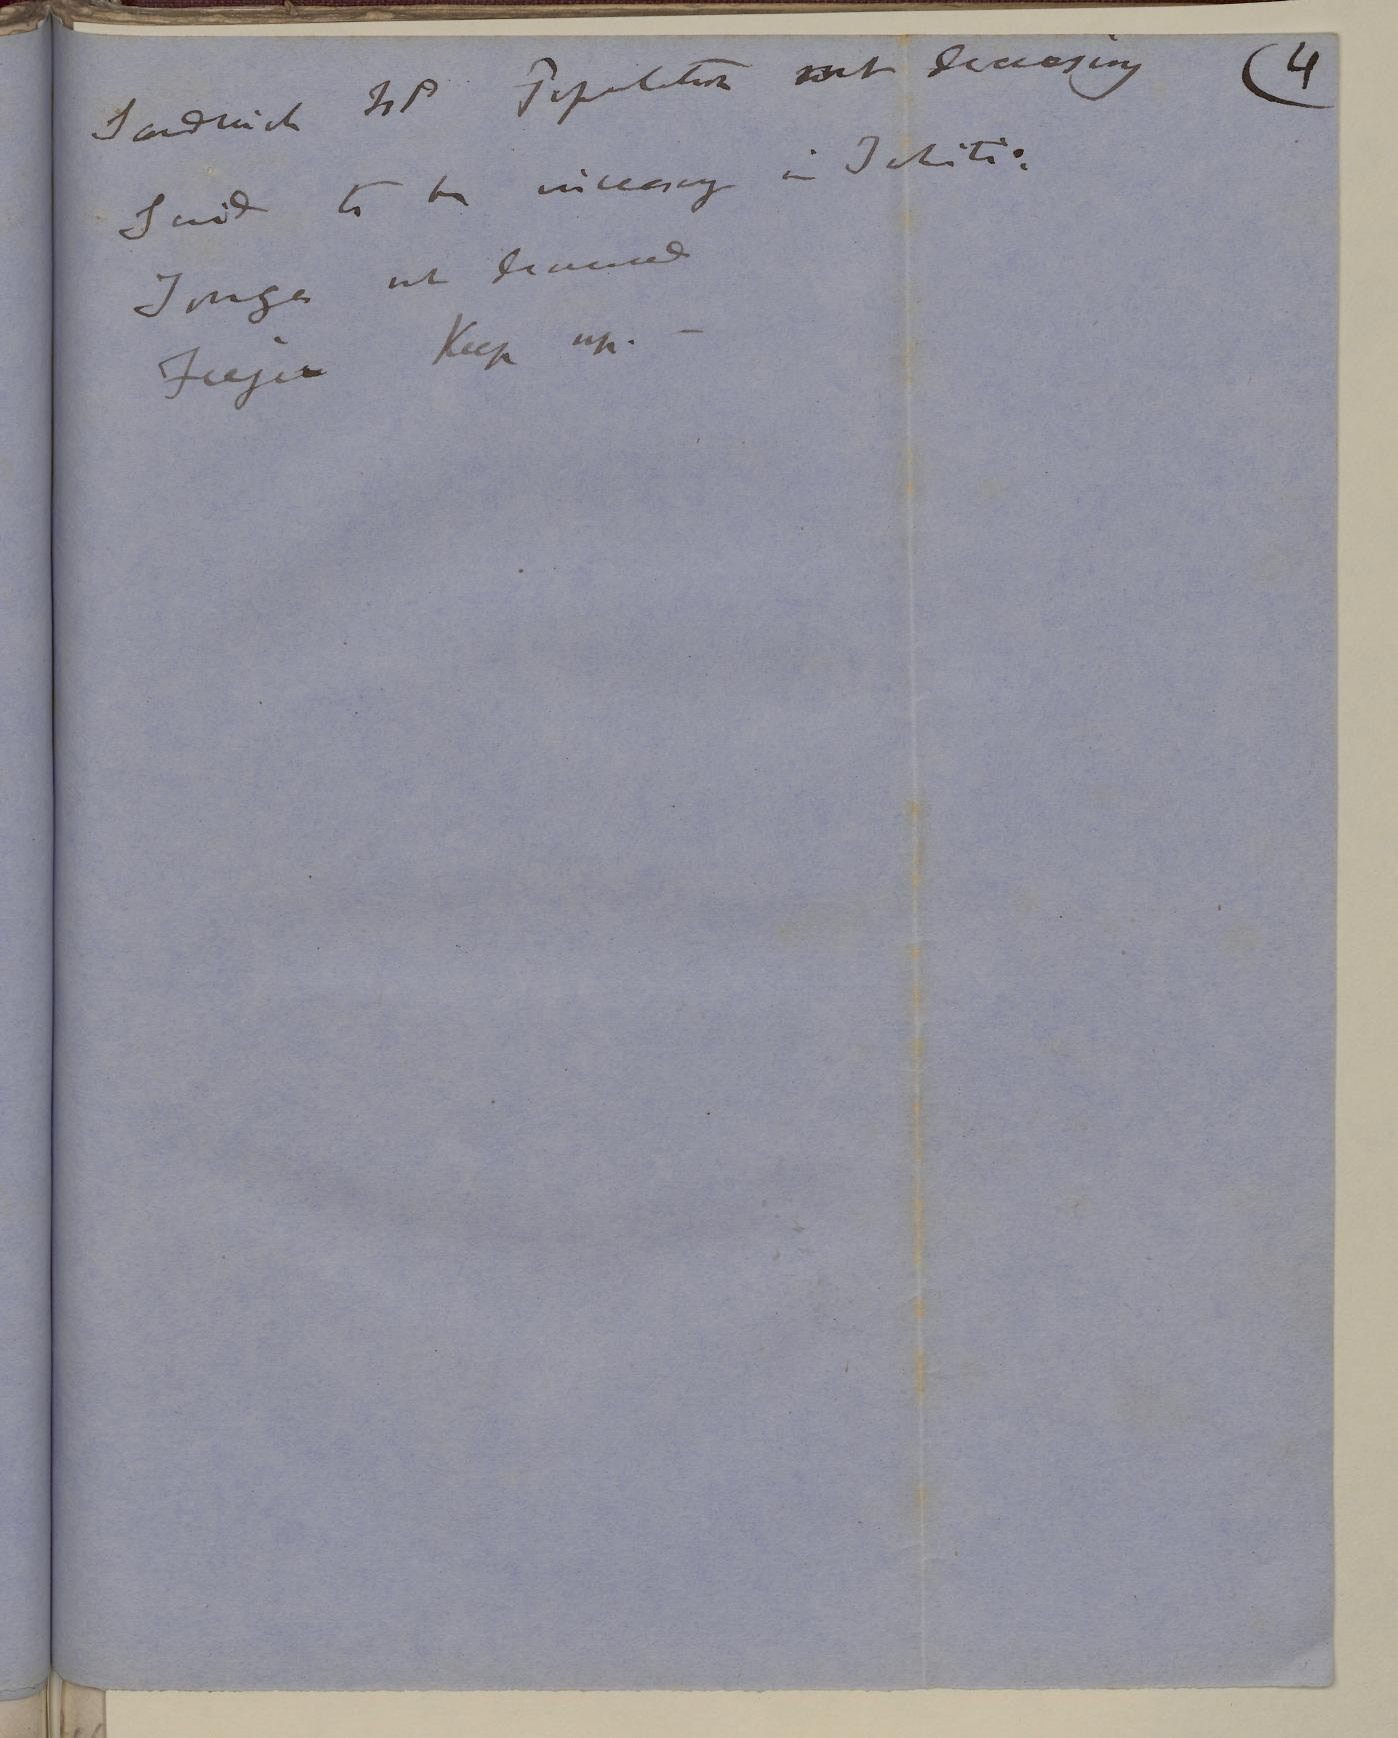 Sandwich Is Population not decreasing (4
Said to be increasing in Tahiti.
Tonga not decreased
Feejee Keep up. —